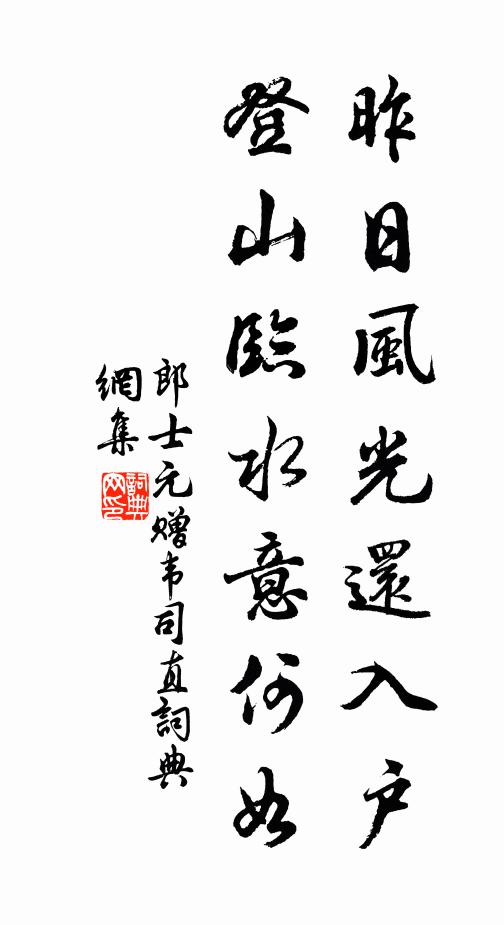 昨日風光還入户
登山臨水意何如
郎士元赠韦司直詞典
網集
詞典网印